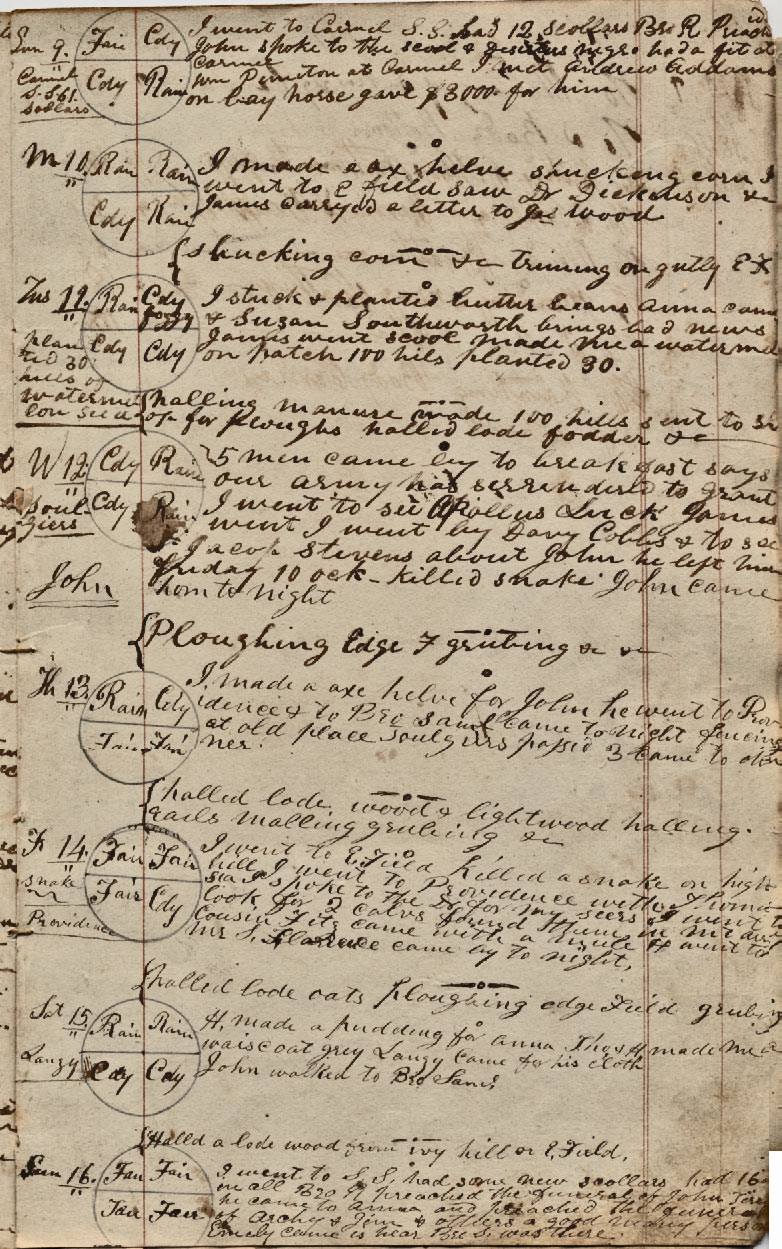 Sun 9. Fair Cdy I went to Carmel S. S. had 12 scollars Bro R
John spoke to the scool & negro had a fit at
Carmel
Carmel S. S. 61. scollars
Cdy Rain Wm at Carmel I met Andrew Addams
on bay horse gave $3000 for him
M 10. Rain Rain I made a ax helve shucking corn I
went to E field saw Dr Dickenson &c
Cdy Rain James carryed a letter to Jas Wood
{shucking corn &c triming on gully E F
Tus 11. Rain Cdy foggy I stuck & planted butter beans anna came
& Susan Southworth brings bad news
Cdy Cdy James went scool made me a watermel
on patch 100 hils planted 30.
plan
ted 30
hills of
watermel
lon seed
{halling manure made 100 hills sent to
op for ploughs halled lode fodder &c
W 12 Cdy Rain 5 men came by to breakfast says
our army has serrendered to Grant
Cdy Rain I went to see Apollus Luck James
soul
giers
went I went by Davy Cobbs & to see
Jacob Stevens about John he left him
friday 10 ock - killed snake John came
John
hom to night
{Ploughing Edge F grubing &c &c
Th 13. Rain Cdy I made a axe helve for John he went to Prov
idence & to Bro Sam came to night fencing
Fair Fair at old place soulgiers passed 3 came to din
ner.
{halled lode wood & lightwood halling.
rails malling grubing &c
Fr 14. Fair Fair I went to E. Field Killed a snake on high
hill I went to Providence with Thomas
snake
Fair Cdy I spoke to the Dr for my seers I went to
look for 2 calvs found them in
Providence
Cousin Fitz came with a mule H went to
Mrs S. Clarence came by to night,
{halled lode oats ploughing edge Field grubing
Sat 15. Rain Rain H, made a pudding for anna Thos H made me a
waiscoat grey Langy came for his cloth
Langy Cdy Cdy John walked to Bro Sams
{Halld a lode wood from ivy hill or E, Field,
Sun 16. Fair Fair I went to S, S, had some new scollars had 16
in all Bro R preached the funeral of John
Fair Fair he came to anna and preached the funeral
of Archy & Jim & others a good many person
Emely came is hear Bro S. was there